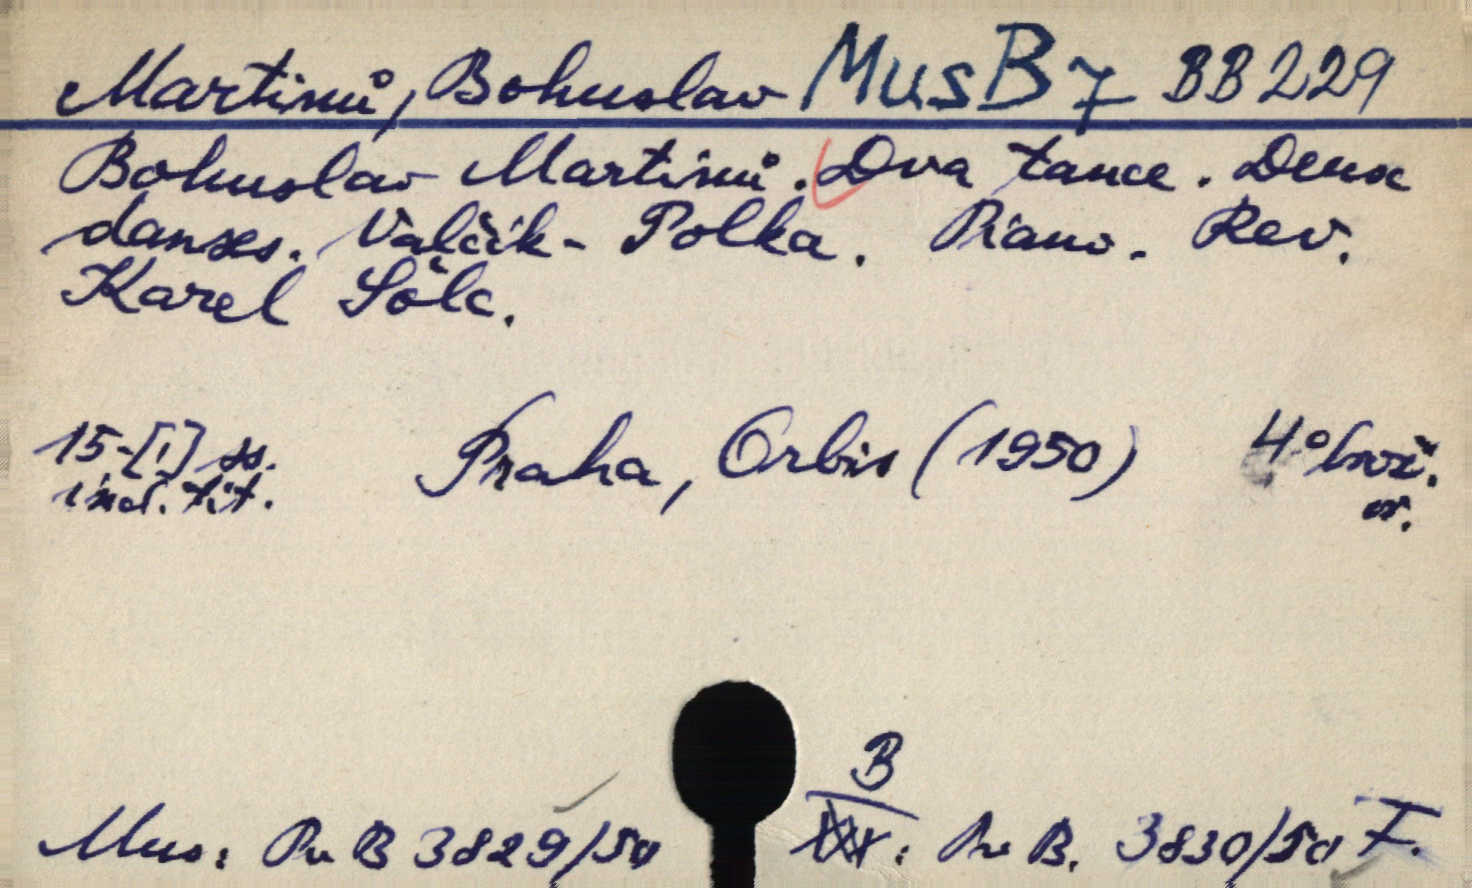 Martinů, Bohuslav MusB7 BB229
Bohuslav Martinů. Dva tance. Deux
danses. Valčík - Polka. Piano. Rev.
Karel Šolc.
15-[1] ss. Praha, Orbis (1950) 4° brož.
incl. tit. or.
B
Mus: Pu B 3829/50 : Pu B. 3830/50 F.